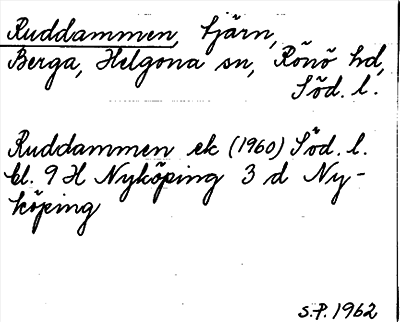 Ruddammen, tjärn,
Berga, Helgona sn, Rönö hd,
Söd. l.
Ruddammen ek (1960) Söd. l.
bl. 9 H Nyköping 3 d Ny-
köping
S.P. 1962